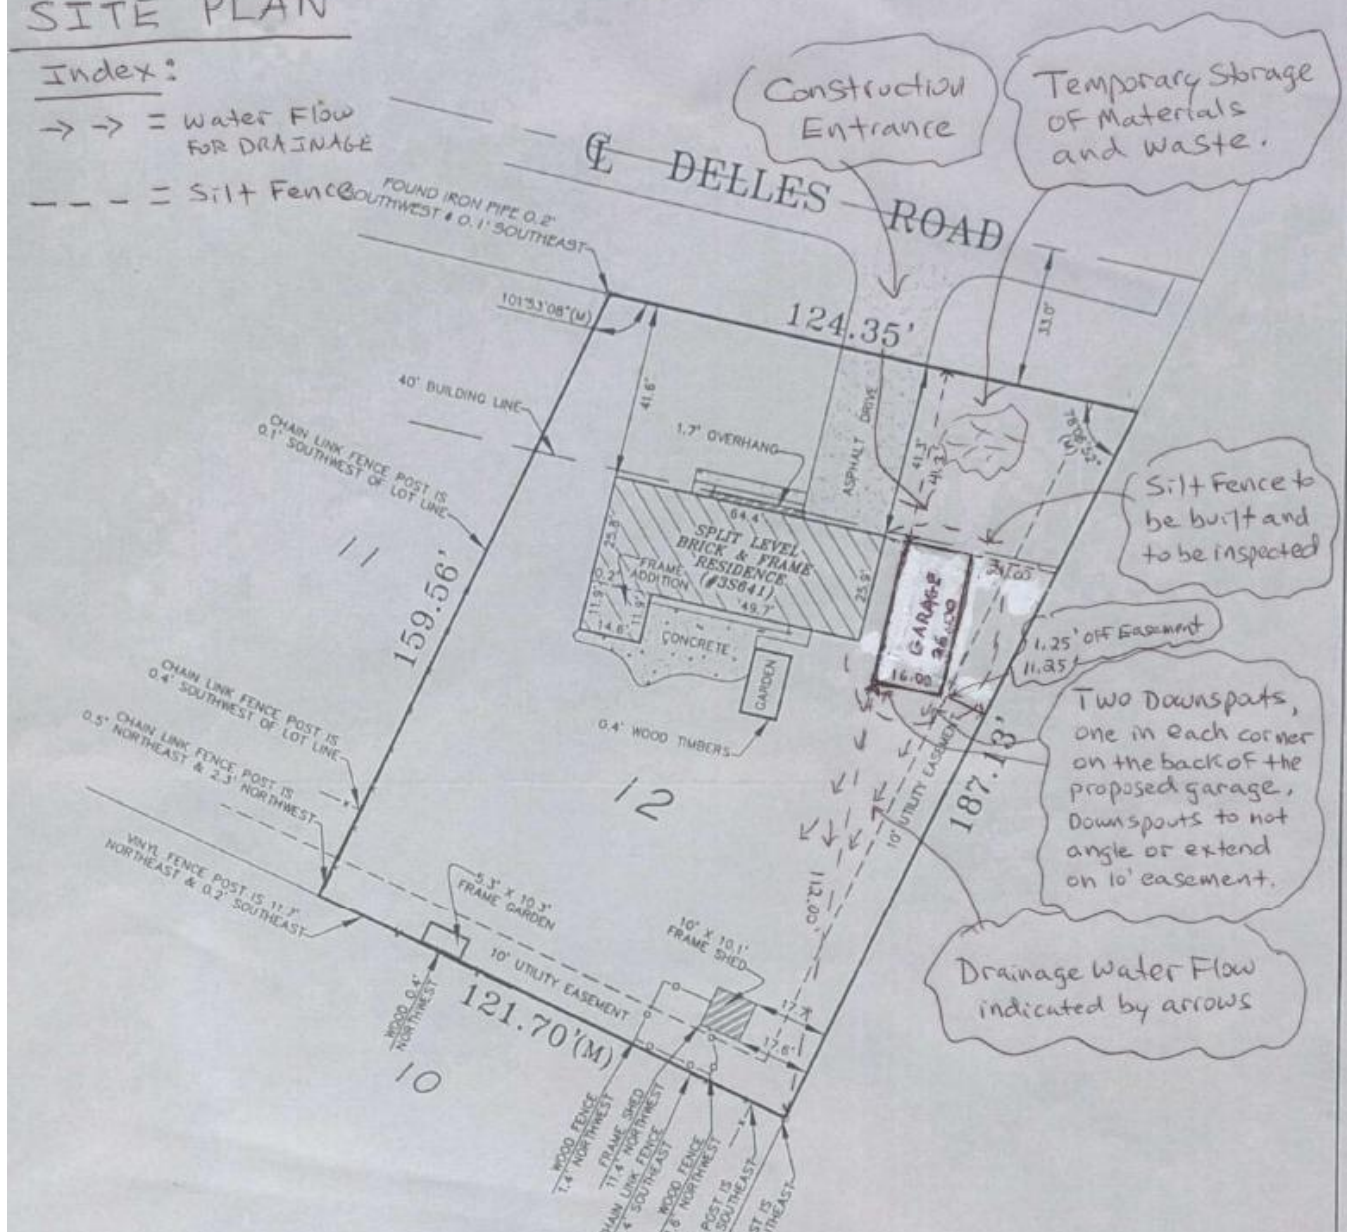 SITE PLAN
Index:
→ → = Water Flow
FOR DRAINAGE
--- = Silt Fence
Construction
Entrance
Temporary Storage
of Materials
and waste.
℄ DELLES ROAD
FOUND IRON PIPE 0.2'
SOUTHWEST & 0.1' SOUTHEAST
101°53'08"(M)
124.35'
33.0'
40' BUILDING LINE
41.6'
1.7' OVERHANG
ASPHALT DRIVE
41.3'
41.3'
78°06'52"
(M)
CHAIN LINK FENCE POST IS
0.1' SOUTHWEST OF LOT LINE
11
159.56'
64.4'
SPLIT LEVEL
BRICK & FRAME
RESIDENCE
(#3S641)
25.8'
0.2'
FRAME
ADDITION
11.9'
11.9'
14.6'
49.7'
25.9'
CONCRETE
GARDEN
0.4' WOOD TIMBERS
GARAGE
26.00
16.00
Silt Fence to
be built and
to be inspected
1.25' OFF Easement
11.25'
Two Downspouts,
one in each corner
on the back of the
proposed garage.
Downspouts to not
angle or extend
on 10' easement.
187.13'
10' UTILITY EASEMENT
12
112.00'
CHAIN LINK FENCE POST IS
0.4' SOUTHWEST OF LOT LINE
CHAIN LINK FENCE POST IS
0.5' NORTHEAST & 2.3' NORTHWEST
VINYL FENCE POST IS 11.7'
NORTHEAST & 0.2' SOUTHEAST
5.3' X 10.3'
FRAME GARDEN
10' X 10.1'
FRAME SHED
10' UTILITY EASEMENT
17.7'
17.6'
Drainage Water Flow
indicated by arrows
WOOD 0.4'
NORTHWEST
121.70'(M)
10
WOOD FENCE
1.4' NORTHWEST
FRAME SHED
11.4' NORTHWEST
CHAIN LINK FENCE
SOUTHEAST
WOOD FENCE
NORTHWEST
POST IS
SOUTHEAST